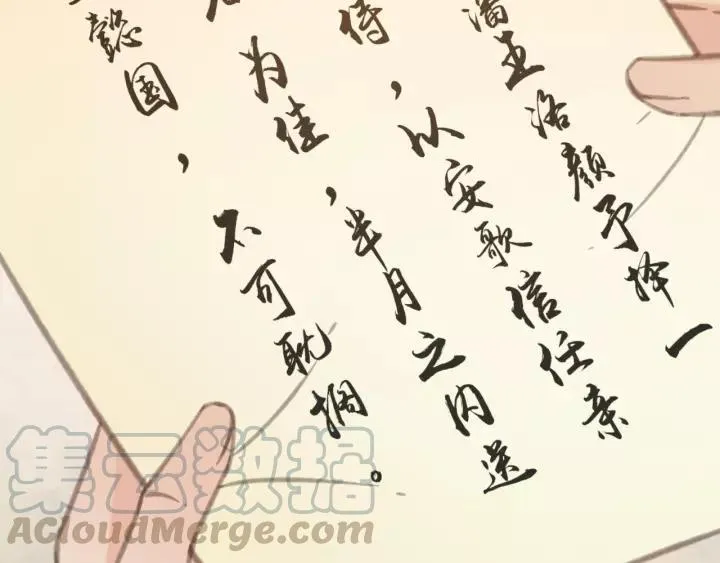 潘玉洛颜予择一
侍，以安歌信任亲
为佳，半月之内送
懿国，不可耽搁。
集云数据
ACloudMerge.com